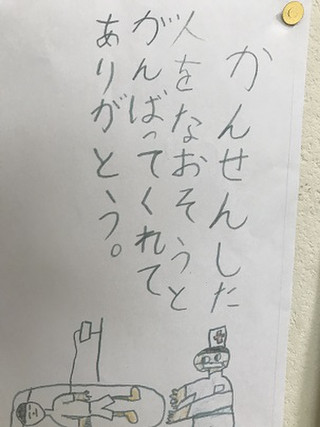 かんせんした
人をなおそうと
がんばってくれて
ありがとう。